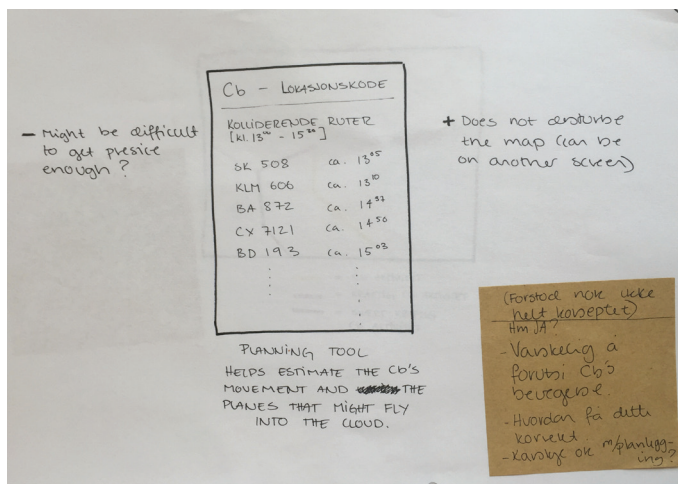 Cb - LOKASJONSKODE
KOLLIDERENDE RUTER
[kl. 13⁰⁰ - 15³⁰]
SK 508 ca. 13⁰⁵
KLM 606 ca. 13¹⁰
BA 872 ca. 14³⁷
CX 7121 ca. 14⁵⁰
BD 193 ca. 15⁰³
- Might be difficult
to get presice
enough?
+ Does not desturbe
the map (can be
on another screen)
PLANNING TOOL
HELPS ESTIMATE THE Cb'S
MOVEMENT AND THE
PLANES THAT MIGHT FLY
INTO THE CLOUD.
(Forstod nok ikke
helt konseptet)
Hm JA?
- Vanskelig å
forutsi Cb's
bevegelse.
- Hvordan få dette
korrekt.
- Kanskje ok m/planlegg-
ing?